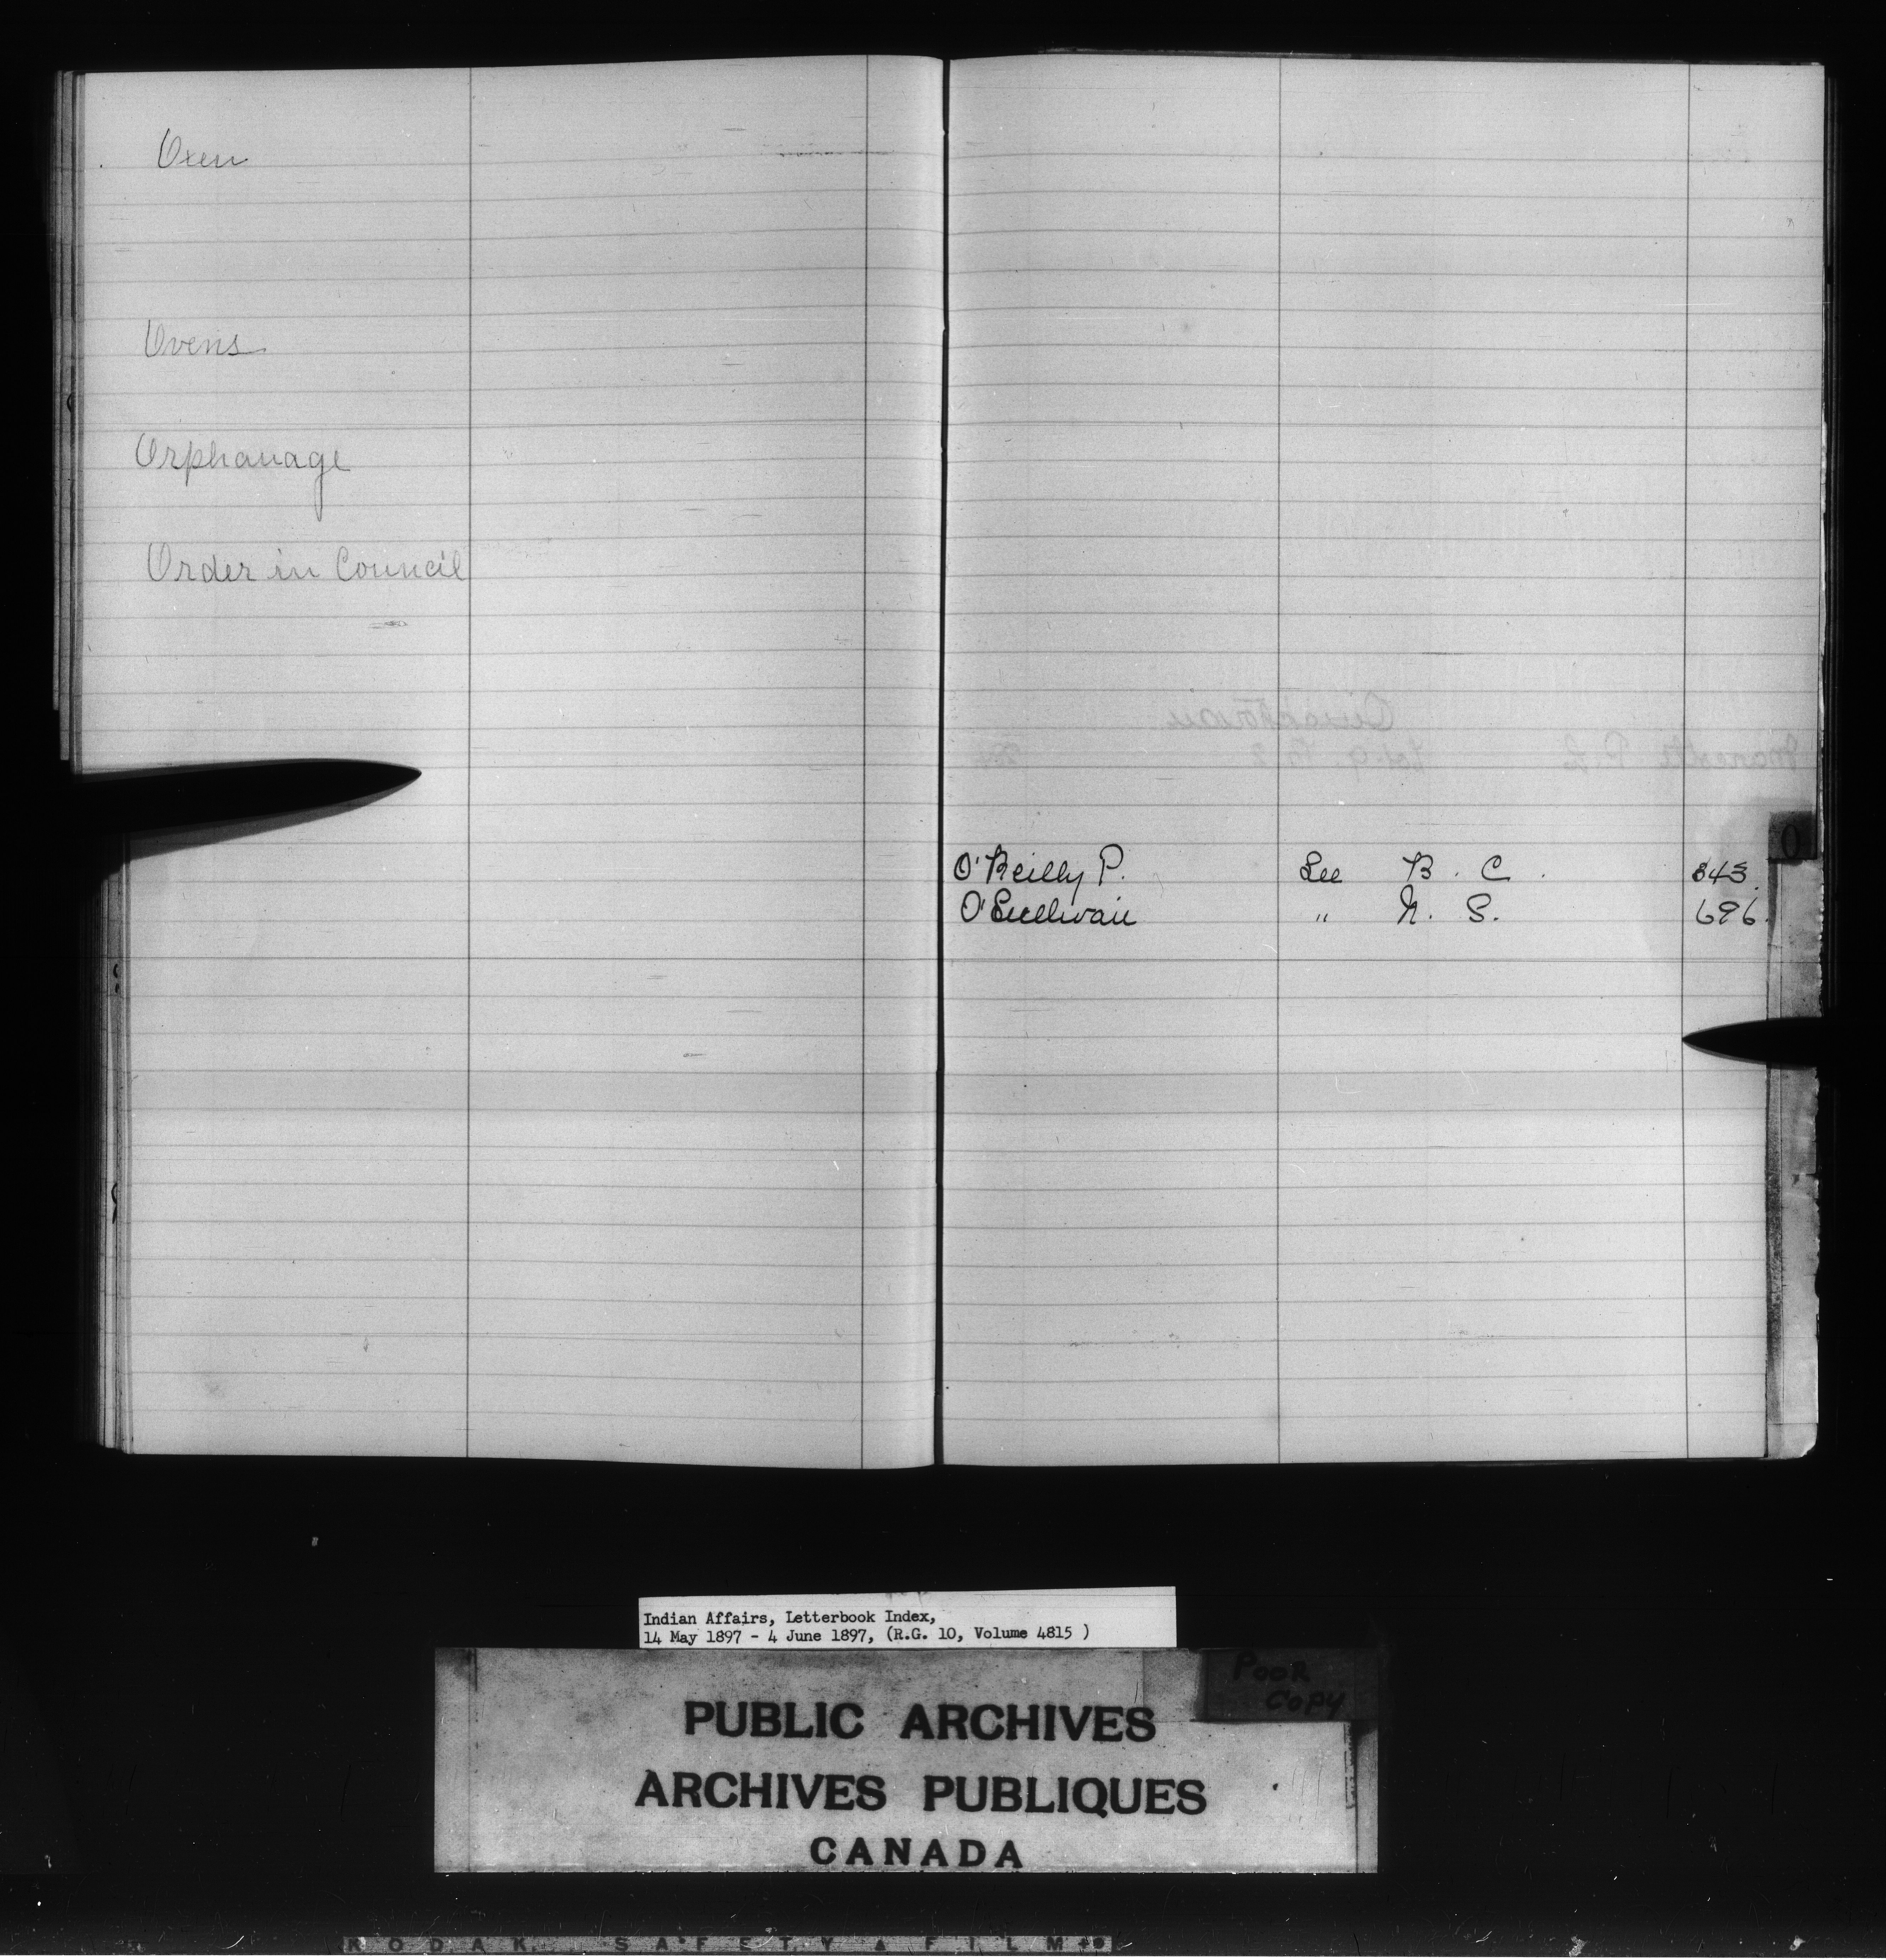 Oxen
Ovens
Orphanage
Order in Council
O
O'Reilly P. See B. C. 343.
O'Sullivan " N. S. 696.
Indian Affairs, Letterbook Index,
14 May 1897 - 4 June 1897, (R.G. 10, Volume 4815 )
POOR
COPY
PUBLIC ARCHIVES
ARCHIVES PUBLIQUES
CANADA
KODAK SAFETY FILM